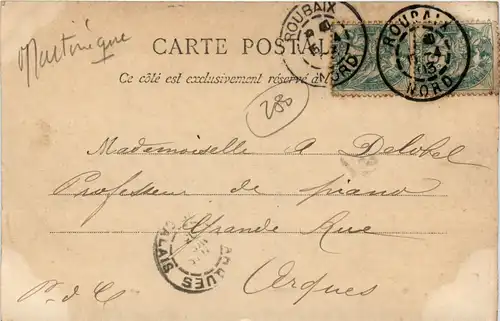 Martinique
CARTE POSTALE
Ce côté est exclusivement réservé à
ROUBAIX
NORD
ROUBAIX
NORD
288
Mademoiselle A Delobel
Professeur de piano
Grande Rue
Arques
P. d C.
ARQUES
CALAIS